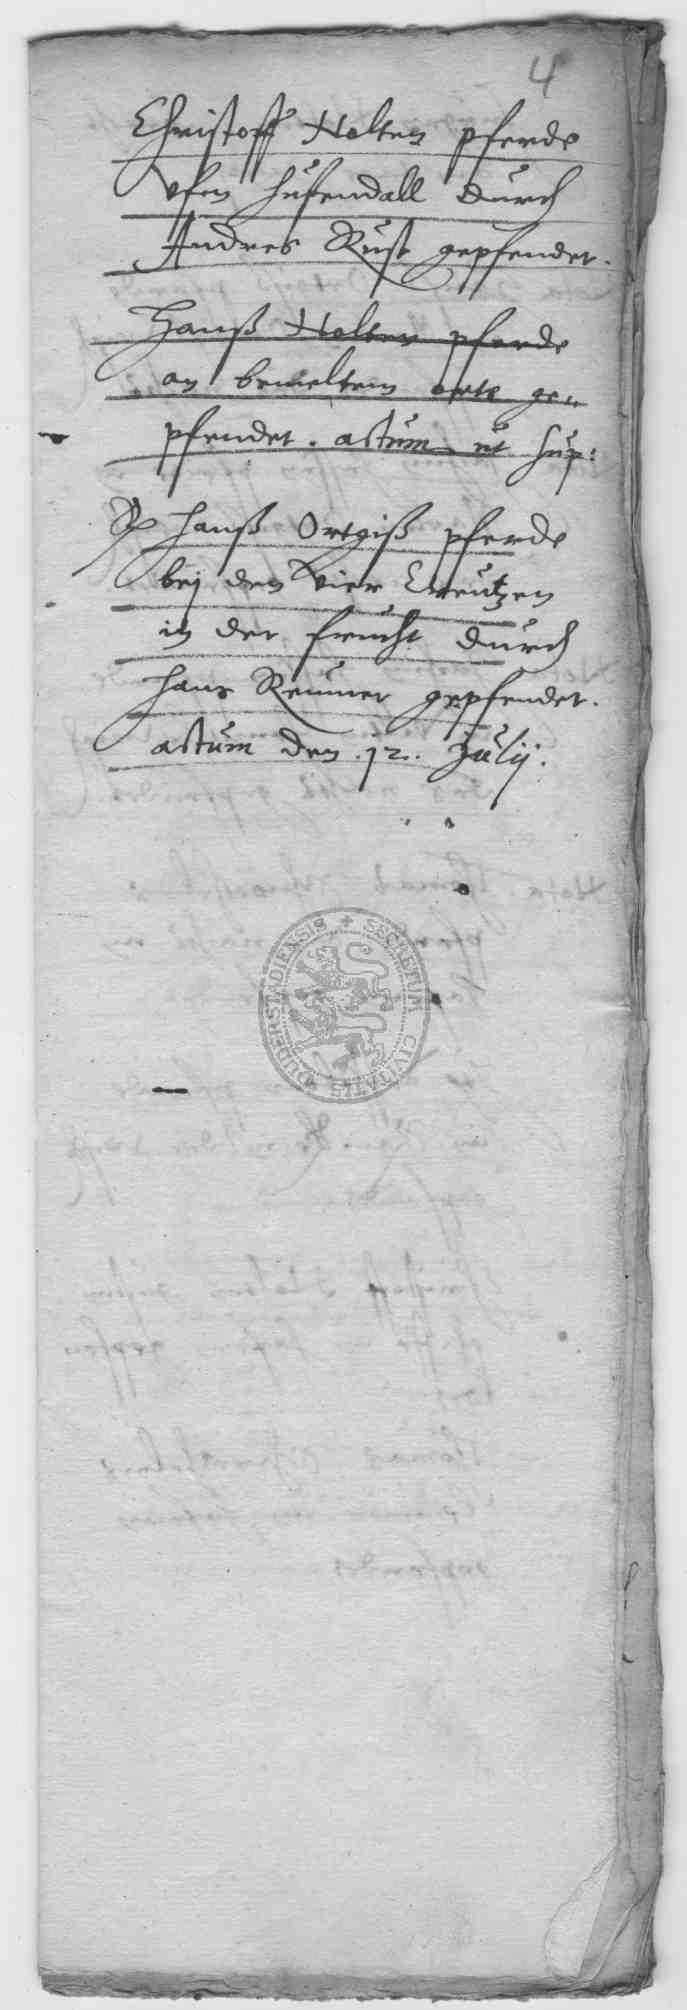 4
Christoff Holten pferde
vfm hufendall durch
Andres Rust gepfendet.
Hanß Holten pferde
an bemeltem orte ge„
pfendet. actum ut sup:
Hanß Ortgiß pferde
bej den vier Creutzen
in der frucht durch
Hans Renner gepfendet.
actum den .12. Julij.
SECRETUM CIVITATIS DUDERSTADIENSIS